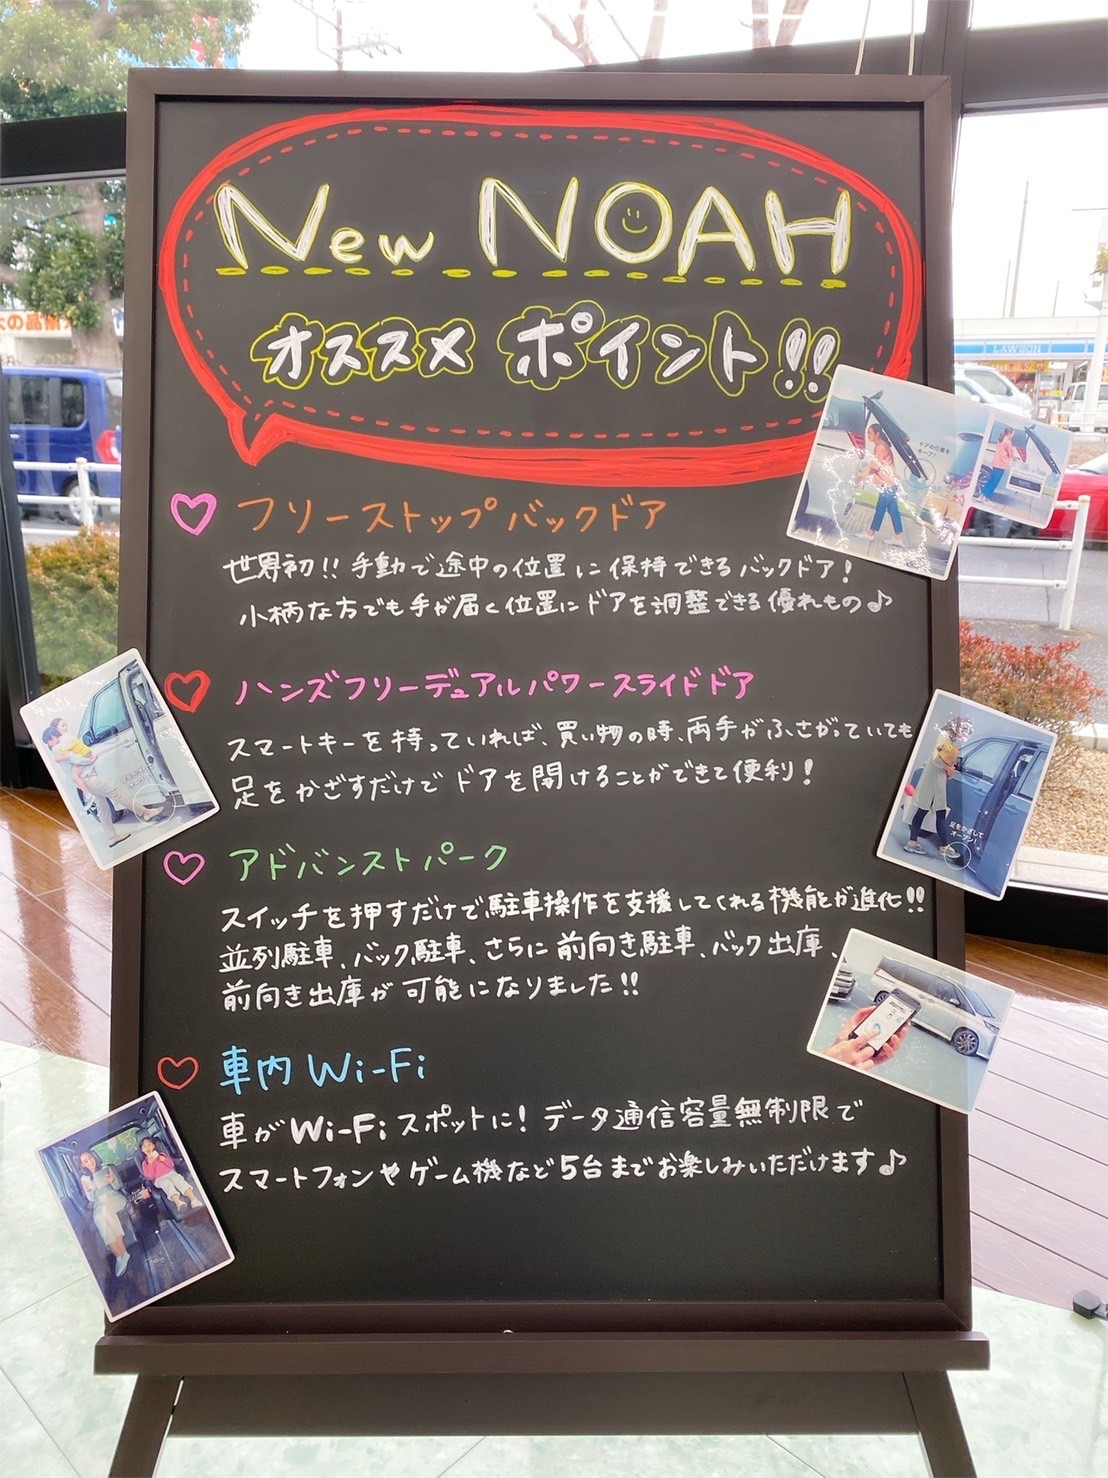 New NOAH
オススメ ポイント!!
フリーストップバックドア
世界初!! 手動で途中の位置に保持できるバックドア!
小柄な方でも手が届く位置にドアを調整できる優れもの♪
ハンズフリーデュアルパワースライドドア
スマートキーを持っていれば、買い物の時、両手がふさがっていても
足をかざすだけでドアを開けることができて便利!
アドバンストパーク
スイッチを押すだけで駐車操作を支援してくれる機能が進化!!
並列駐車、バック駐車、さらに前向き駐車、バック出庫、
前向き出庫が可能になりました!!
車内 Wi-Fi
車がWi-Fiスポットに! データ通信容量無制限で
スマートフォンやゲーム機など5台までお楽しみいただけます♪
ドアの位置を
キープ!
足をかざして
オープン!
LAWSON